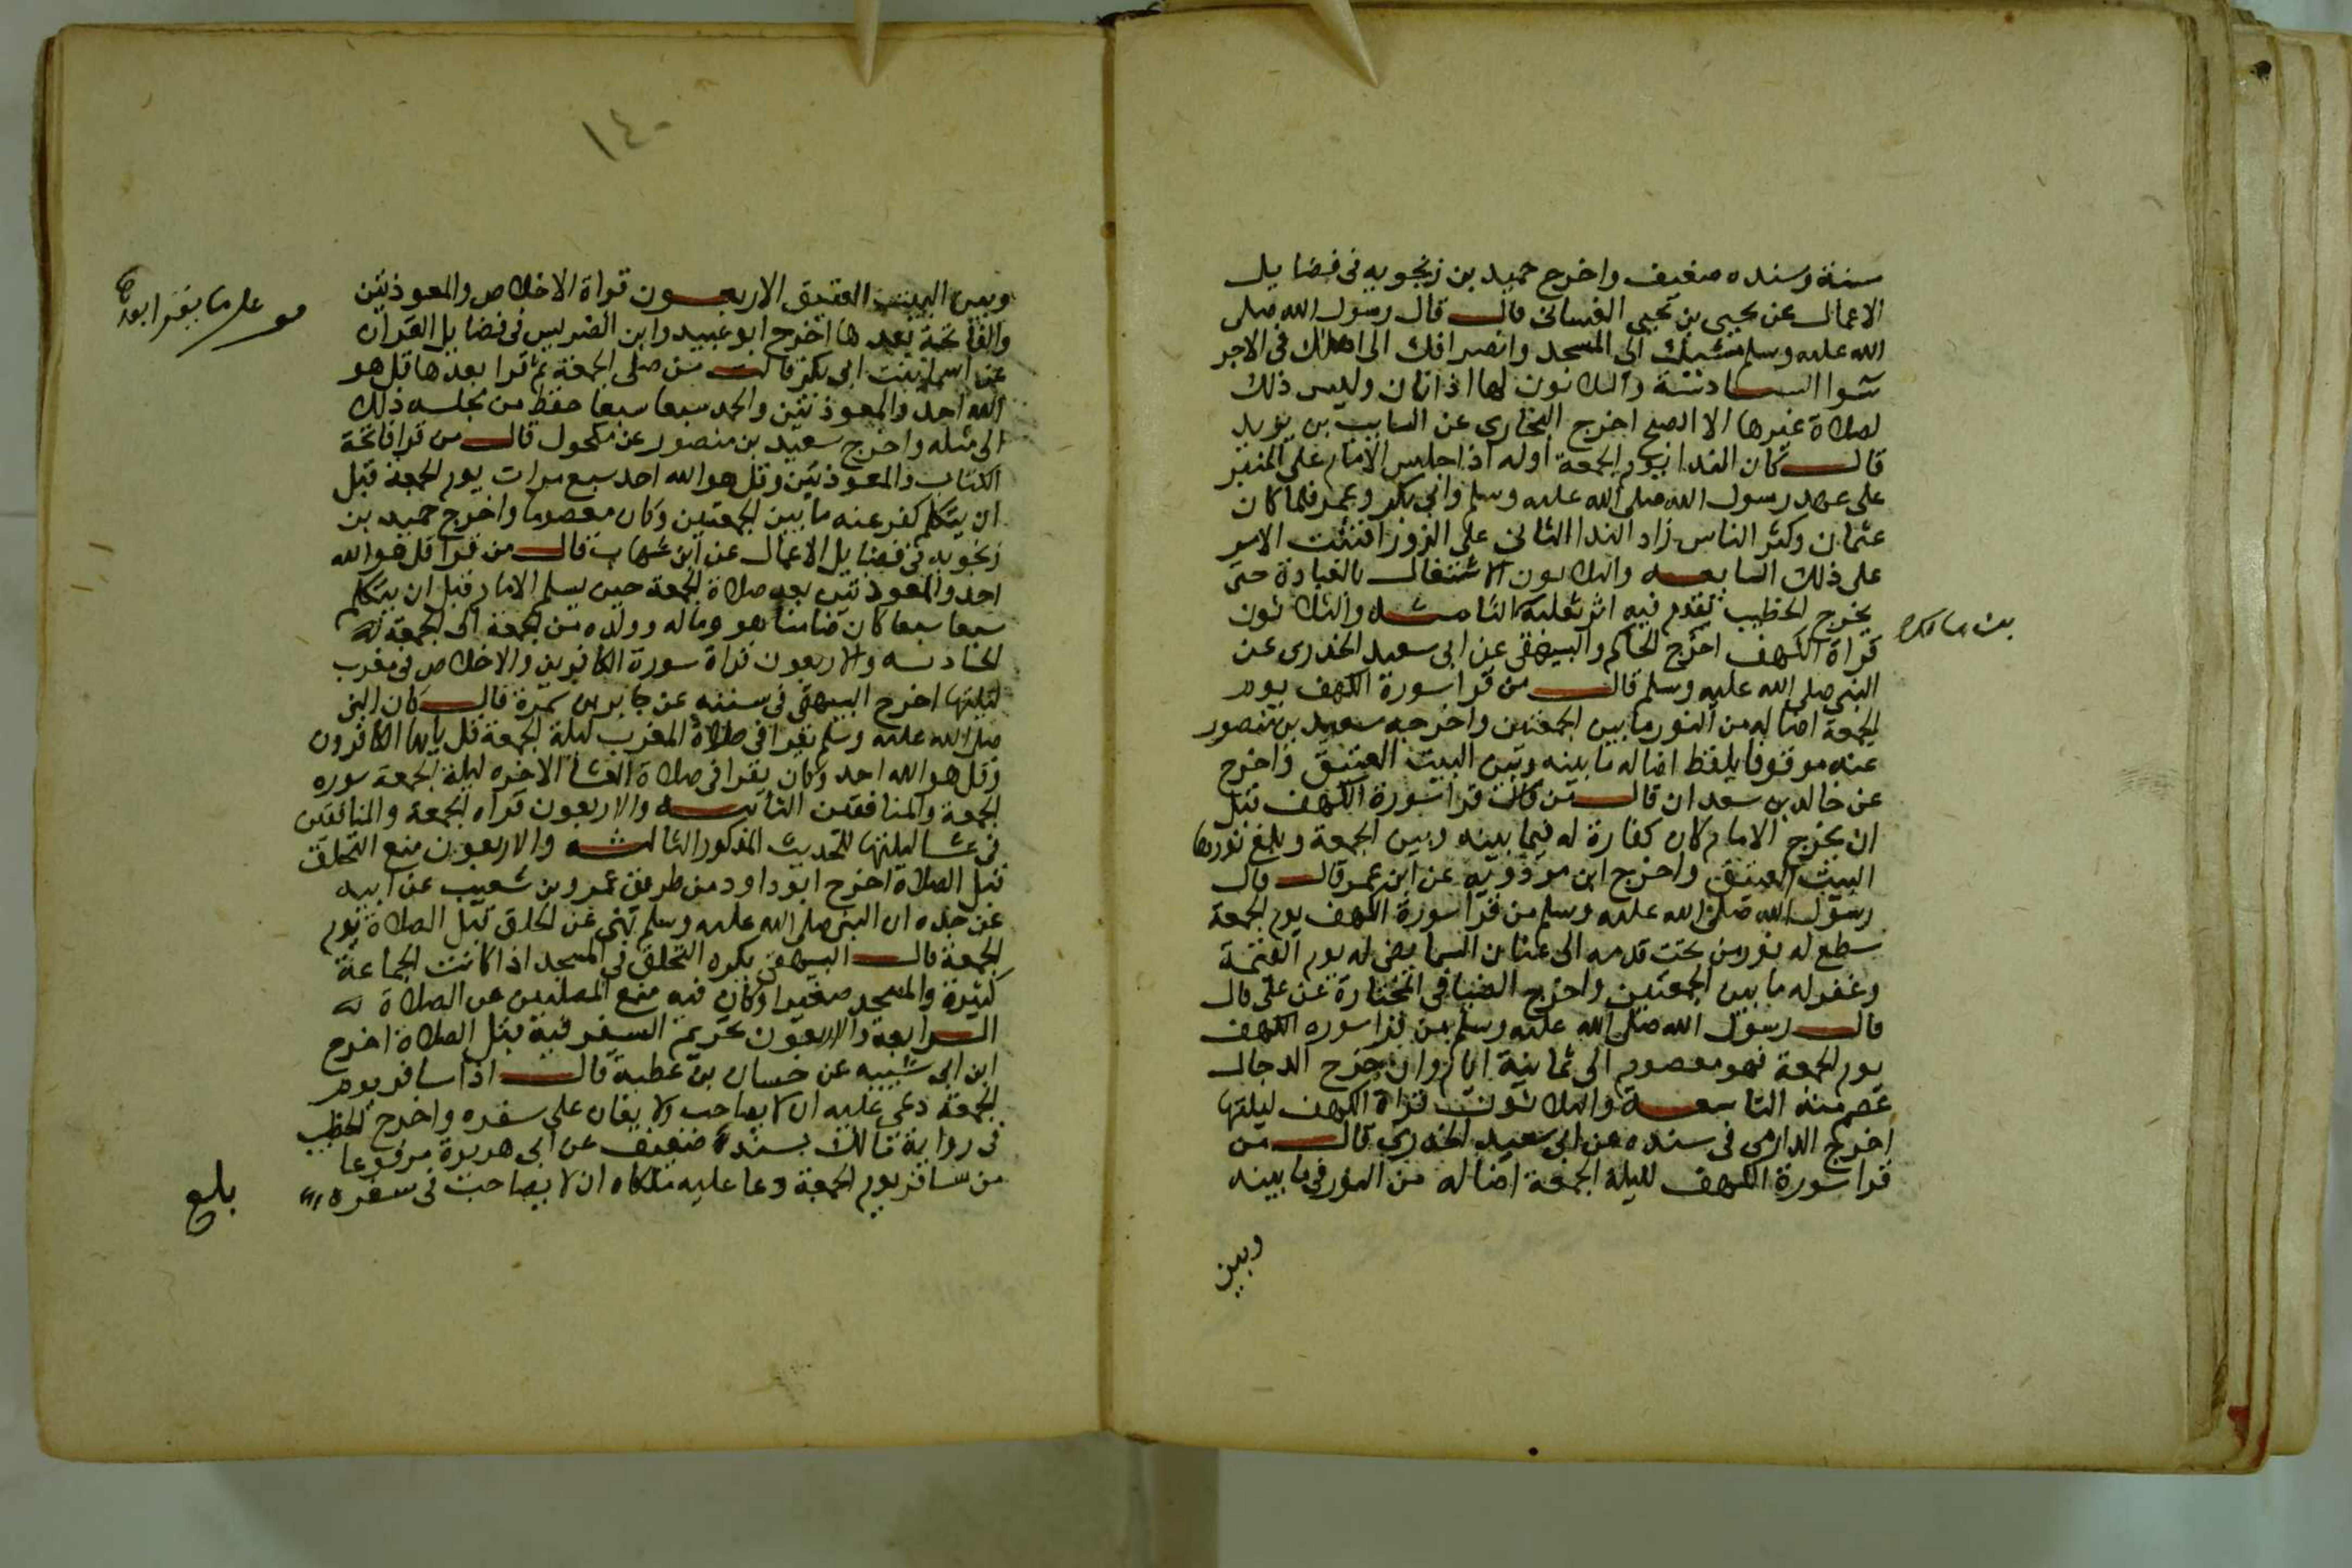 سنة وسنده ضعيف واخرج حميد بن زنجويه فى فضايل
الاعمال عن يحيى بن يحيى الغسانى قال قال رسول الله صلى
الله عليه وسلم مشيك الى المسجد وانصرافك الى اهلك فى الاجر
سوا السادسة والثلاثون لها اذانان وليس ذلك
لصلاة غيرها الا الصبح اخرج البخارى عن السايب بن يزيد
قال كان الندا يوم الجمعة اوله اذا جلس الامام على المنبر
على عهد رسول الله صلى الله عليه وسلم وابى بكر وعمر فلما كان
عثمان وكثر الناس زاد الندا الثانى على الزورا فثبت الامر
على ذلك السابعه والثلاثون الاشتغال بالعبادة حتى
يخرج الخطيب تقدم فيه اثر ثعلبة الثامنه والثلاثون
قراة الكهف اخرج الحاكم والبيهقى عن ابى سعيد الخدرى عن
النبى صلى الله عليه وسلم قال من قرا سورة الكهف يوم
الجمعة اضا له من النور ما بين الجمعتين واخرجه سعيد بن منصور
عنه موقوفا بلفظ اضا له ما بينه وبين البيت العتيق واخرج
عن خالد بن سعدان قال من قرا سورة الكهف قبل
ان يخرج الامام كان كفارة له فيما بينه وبين الجمعة وبلغ نورها
البيت العتيق واخرج ابن مردويه عن ابن عمر قال قال
رسول الله صلى الله عليه وسلم من قرا سورة الكهف يوم الجمعة
سطع له نور من تحت قدمه الى عنان السما يضى له يوم القيمة
وغفر له ما بين الجمعتين واخرج الضيا فى المختارة عن على قال
قال رسول الله صلى الله عليه وسلم من قرا سوره الكهف
يوم الجمعة فهو معصوم الى ثمانية ايام وان خرج الدجال
عصم منه التاسعة والثلاثون قراة الكهف ليلتها
اخرج الدارمى فى سنده عن ابى سعيد الخدرى قال من
قرا سورة الكهف لليلة الجمعة اضا له من النور فى ما بينه
وبين
١٤٠
وبين البيت العتيق الاربعون قراة الاخلاص والمعوذتين
والفاتحة بعدها اخرج ابو عبيد وابن الضريس فى فضايل القران
عن اسما بنت ابى بكر قالت من صلى الجمعة ثم قرا بعدها قل هو
الله احد والمعوذتين والحمد سبعا سبعا حفظ من مجلسه ذلك
الى مثله واخرج سعيد بن منصور عن مكحول قال من قرا فاتحة
الكتاب والمعوذتين وقل هو الله احد سبع مرات يوم الجمعة قبل
ان يتكلم كفر عنه ما بين الجمعتين وكان معصوما واخرج حميد بن
زنجويه فى فضايل الاعمال عن ابن شهاب قال من قرا قل هو الله
احد والمعوذتين بعد صلاة الجمعة حين يسلم الامام قبل ان يتكلم
سبعا سبعا كان ضامنا هو وماله وولده من الجمعة الى الجمعة
الحادية والاربعون قراة سورة الكافرين والاخلاص فى مغرب
ليلتها اخرج البيهقى فى سننه عن جابر بن سمرة قال كان النبى
صلى الله عليه وسلم يقرا فى صلاة المغرب ليلة الجمعة قل يايها الكافرون
وقل هو الله احد وكان يقرا فى صلاة العشا الاخره ليلة الجمعة سوره
الجمعة والمنافقين الثانيه والاربعون قراه الجمعة والمنافقين
فى عشا ليلتها للحديث المذكور الثالثه والاربعون منع التحلق
قبل الصلاة اخرج ابو داود من طريق عمرو بن شعيب عن ابيه
عن جده ان النبى صلى الله عليه وسلم نهى عن الحلق قبل الصلاة يوم
الجمعة قال البيهقى يكره التحلق فى المسجد اذا كانت الجماعة
كثيرة والمسجد صغيرا وكان فيه منع المصليين عن الصلاة
الرابعة والاربعون تحريم السفر فيه قبل الصلاة اخرج
ابن ابى شيبه عن حسان بن عطية قال اذا سافر يوم
الجمعة دعى عليه ان لا يصاحب ولا يعان على سفره واخرج الخطيب
فى رواية مالك بسنده ضعيف عن ابى هريرة مرفوعا
من سافر يوم الجمعة دعا عليه ملكاه ان لا يصاحب فى سفره
بلغ